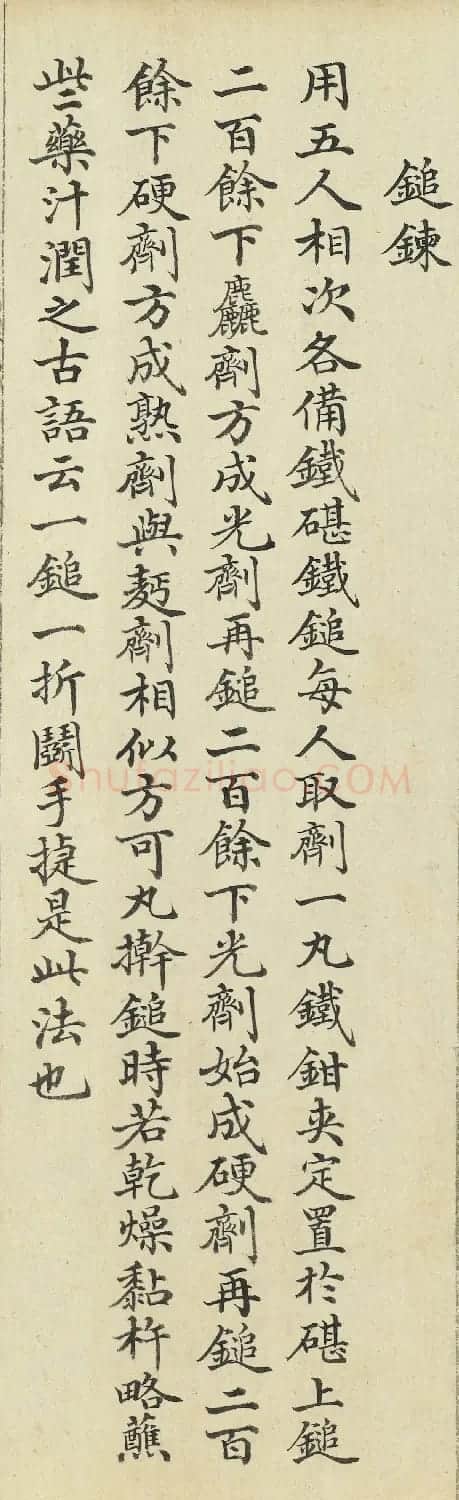 鎚鍊
用五人相次各備鐵碪鐵鎚每人取劑一丸鐵鉗夾定置於碪上鎚
二百餘下麤劑方成光劑再鎚二百餘下光劑始成硬劑再鎚二百
餘下硬劑方成熟劑與麪劑相似方可丸擀鎚時若乾燥黏杵略蘸
些藥汁潤之古語云一鎚一折鬭手捷是此法也
Shufaziliao.COM